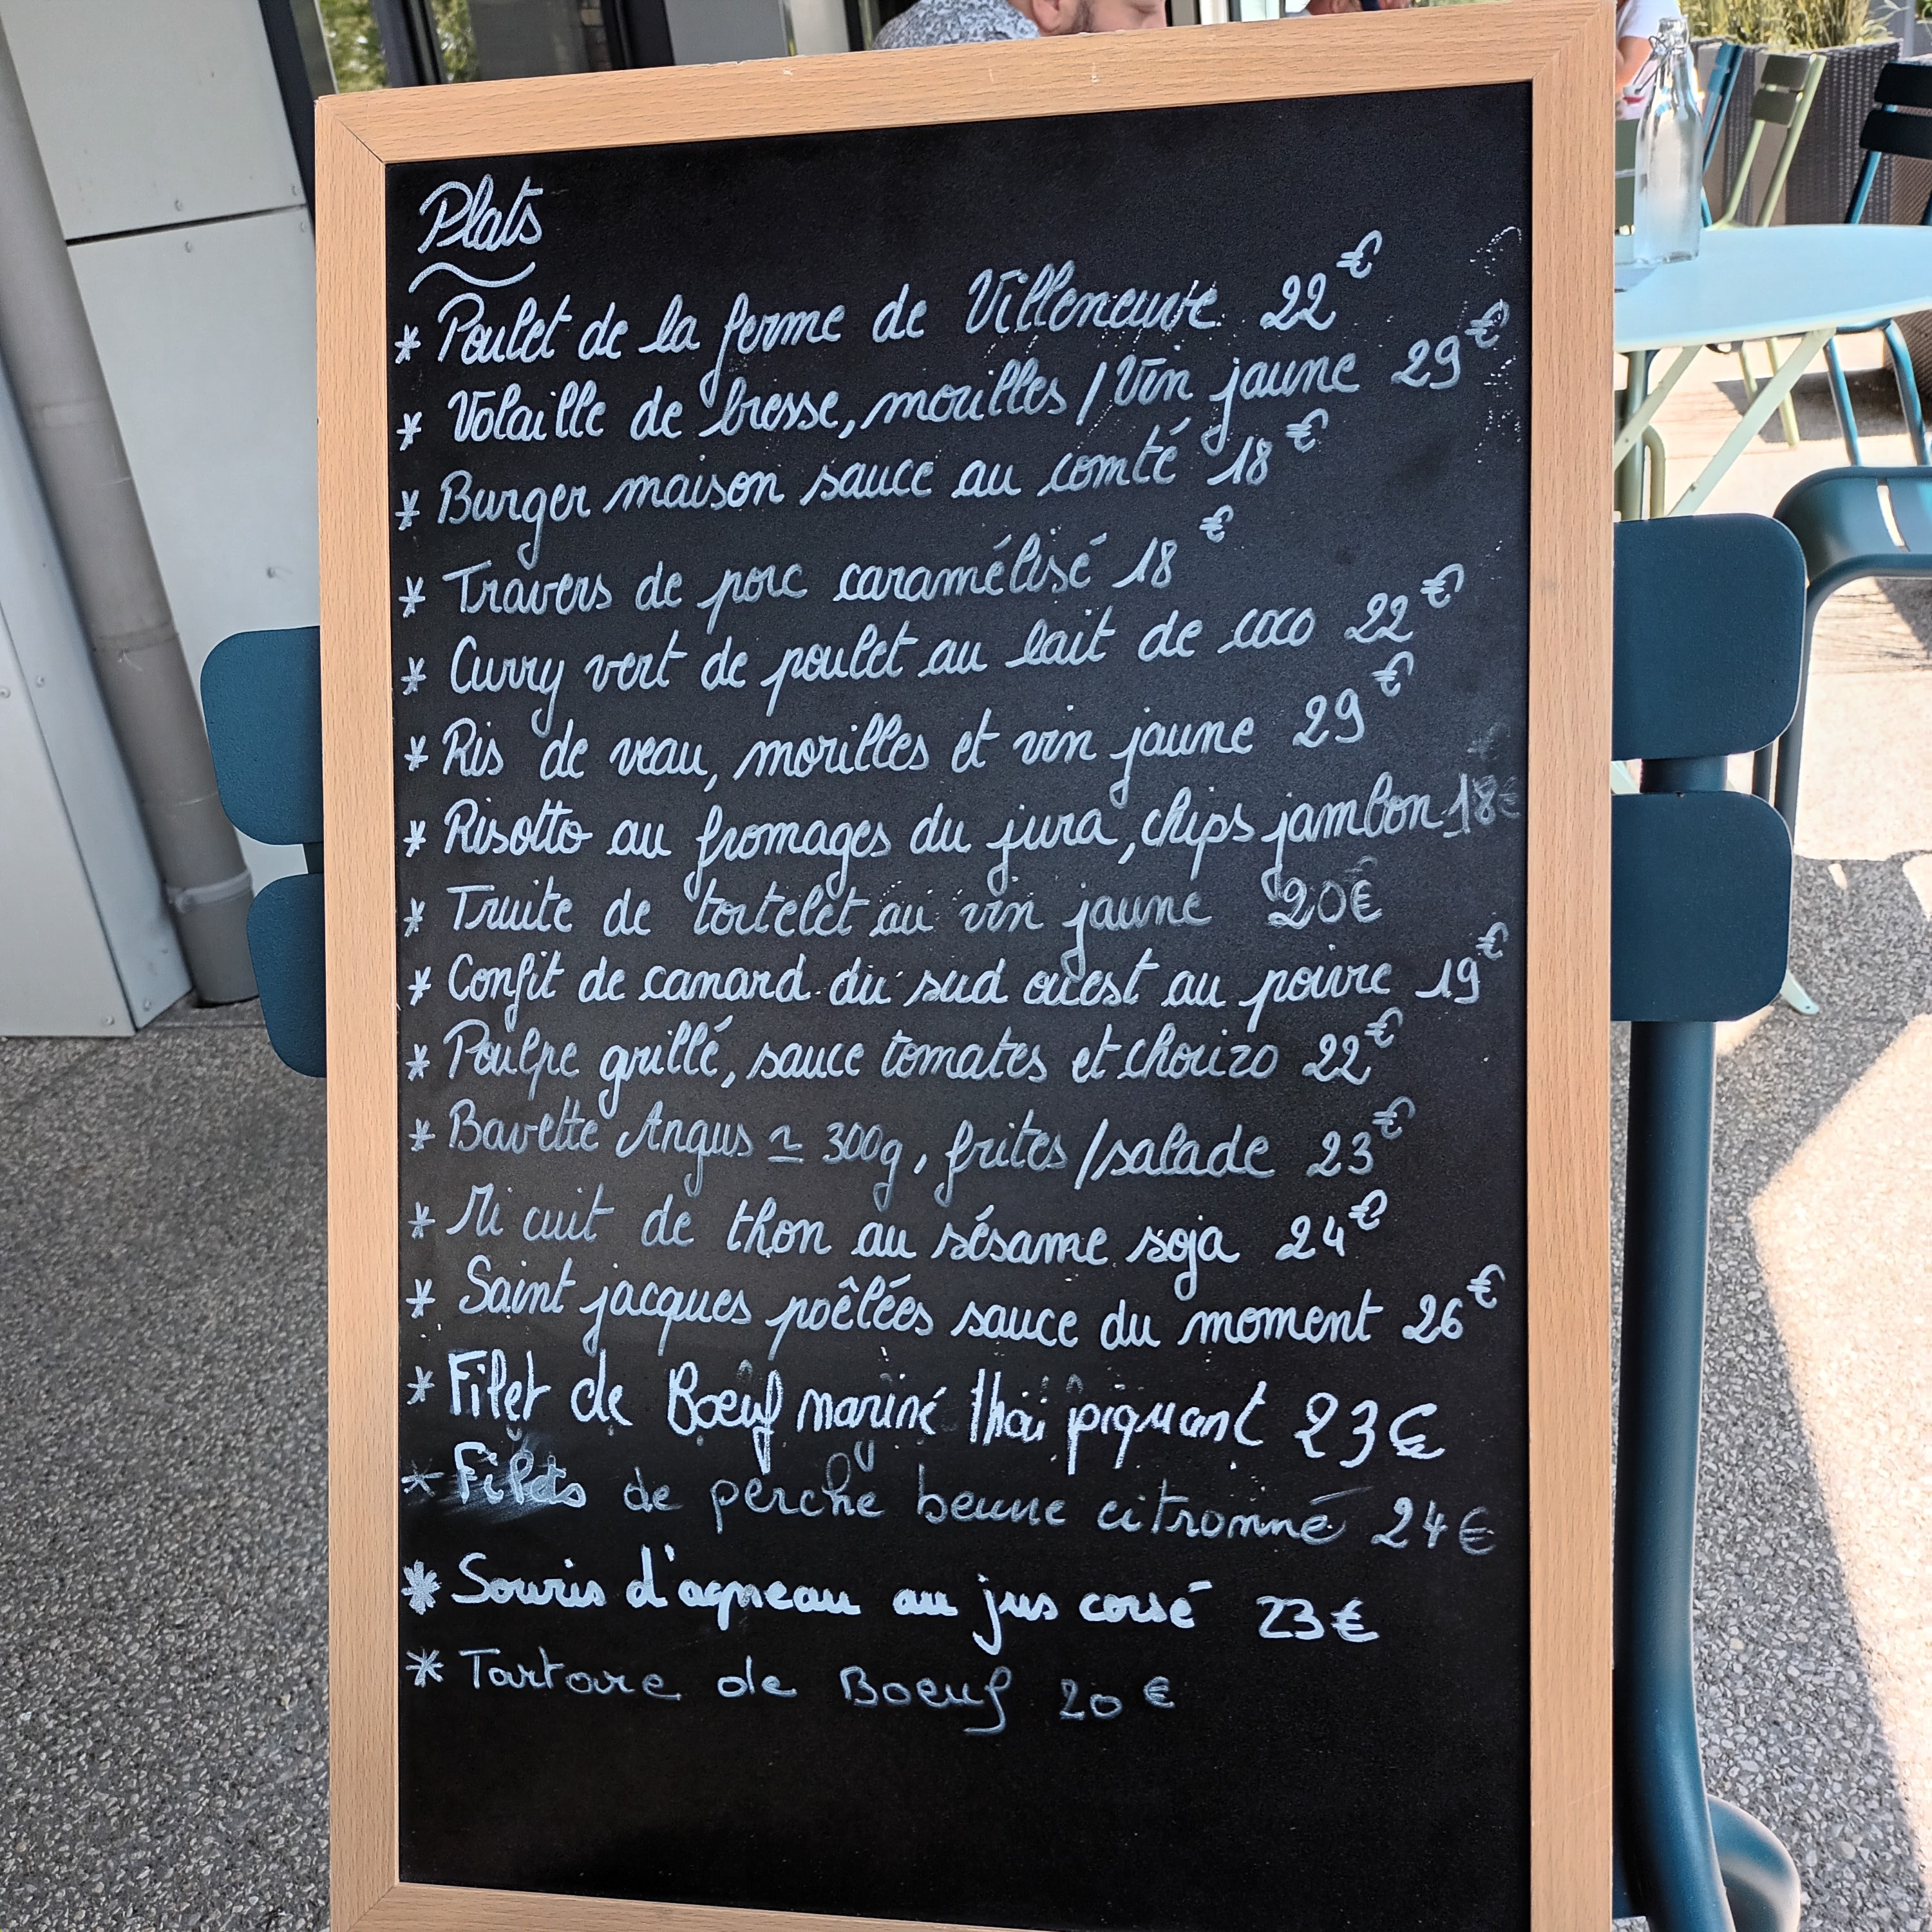 Plats
* Poulet de la ferme de Villeneuve 22€
* Volaille de bresse, morilles / Vin jaune 29€
* Burger maison sauce au comté 18€
* Travers de porc caramélisé 18€
* Curry vert de poulet au lait de coco 22€
* Ris de veau, morilles et vin jaune 29€
* Risotto au fromages du jura, chips jambon 18€
* Truite de tortelet au vin jaune 20€
* Confit de canard du sud ouest au poivre 19€
* Poulpe grillé, sauce tomates et chorizo 22€
* Bavette Angus ≃ 300g, frites/salade 23€
* Mi cuit de thon au sésame soja 24€
* Saint jacques poêlées sauce du moment 26€
* Filet de Boeuf mariné thai piquant 23€
* Filets de perche beurre citronné 24€
* Souris d'agneau au jus corsé 23€
* Tartare de Boeuf 20€